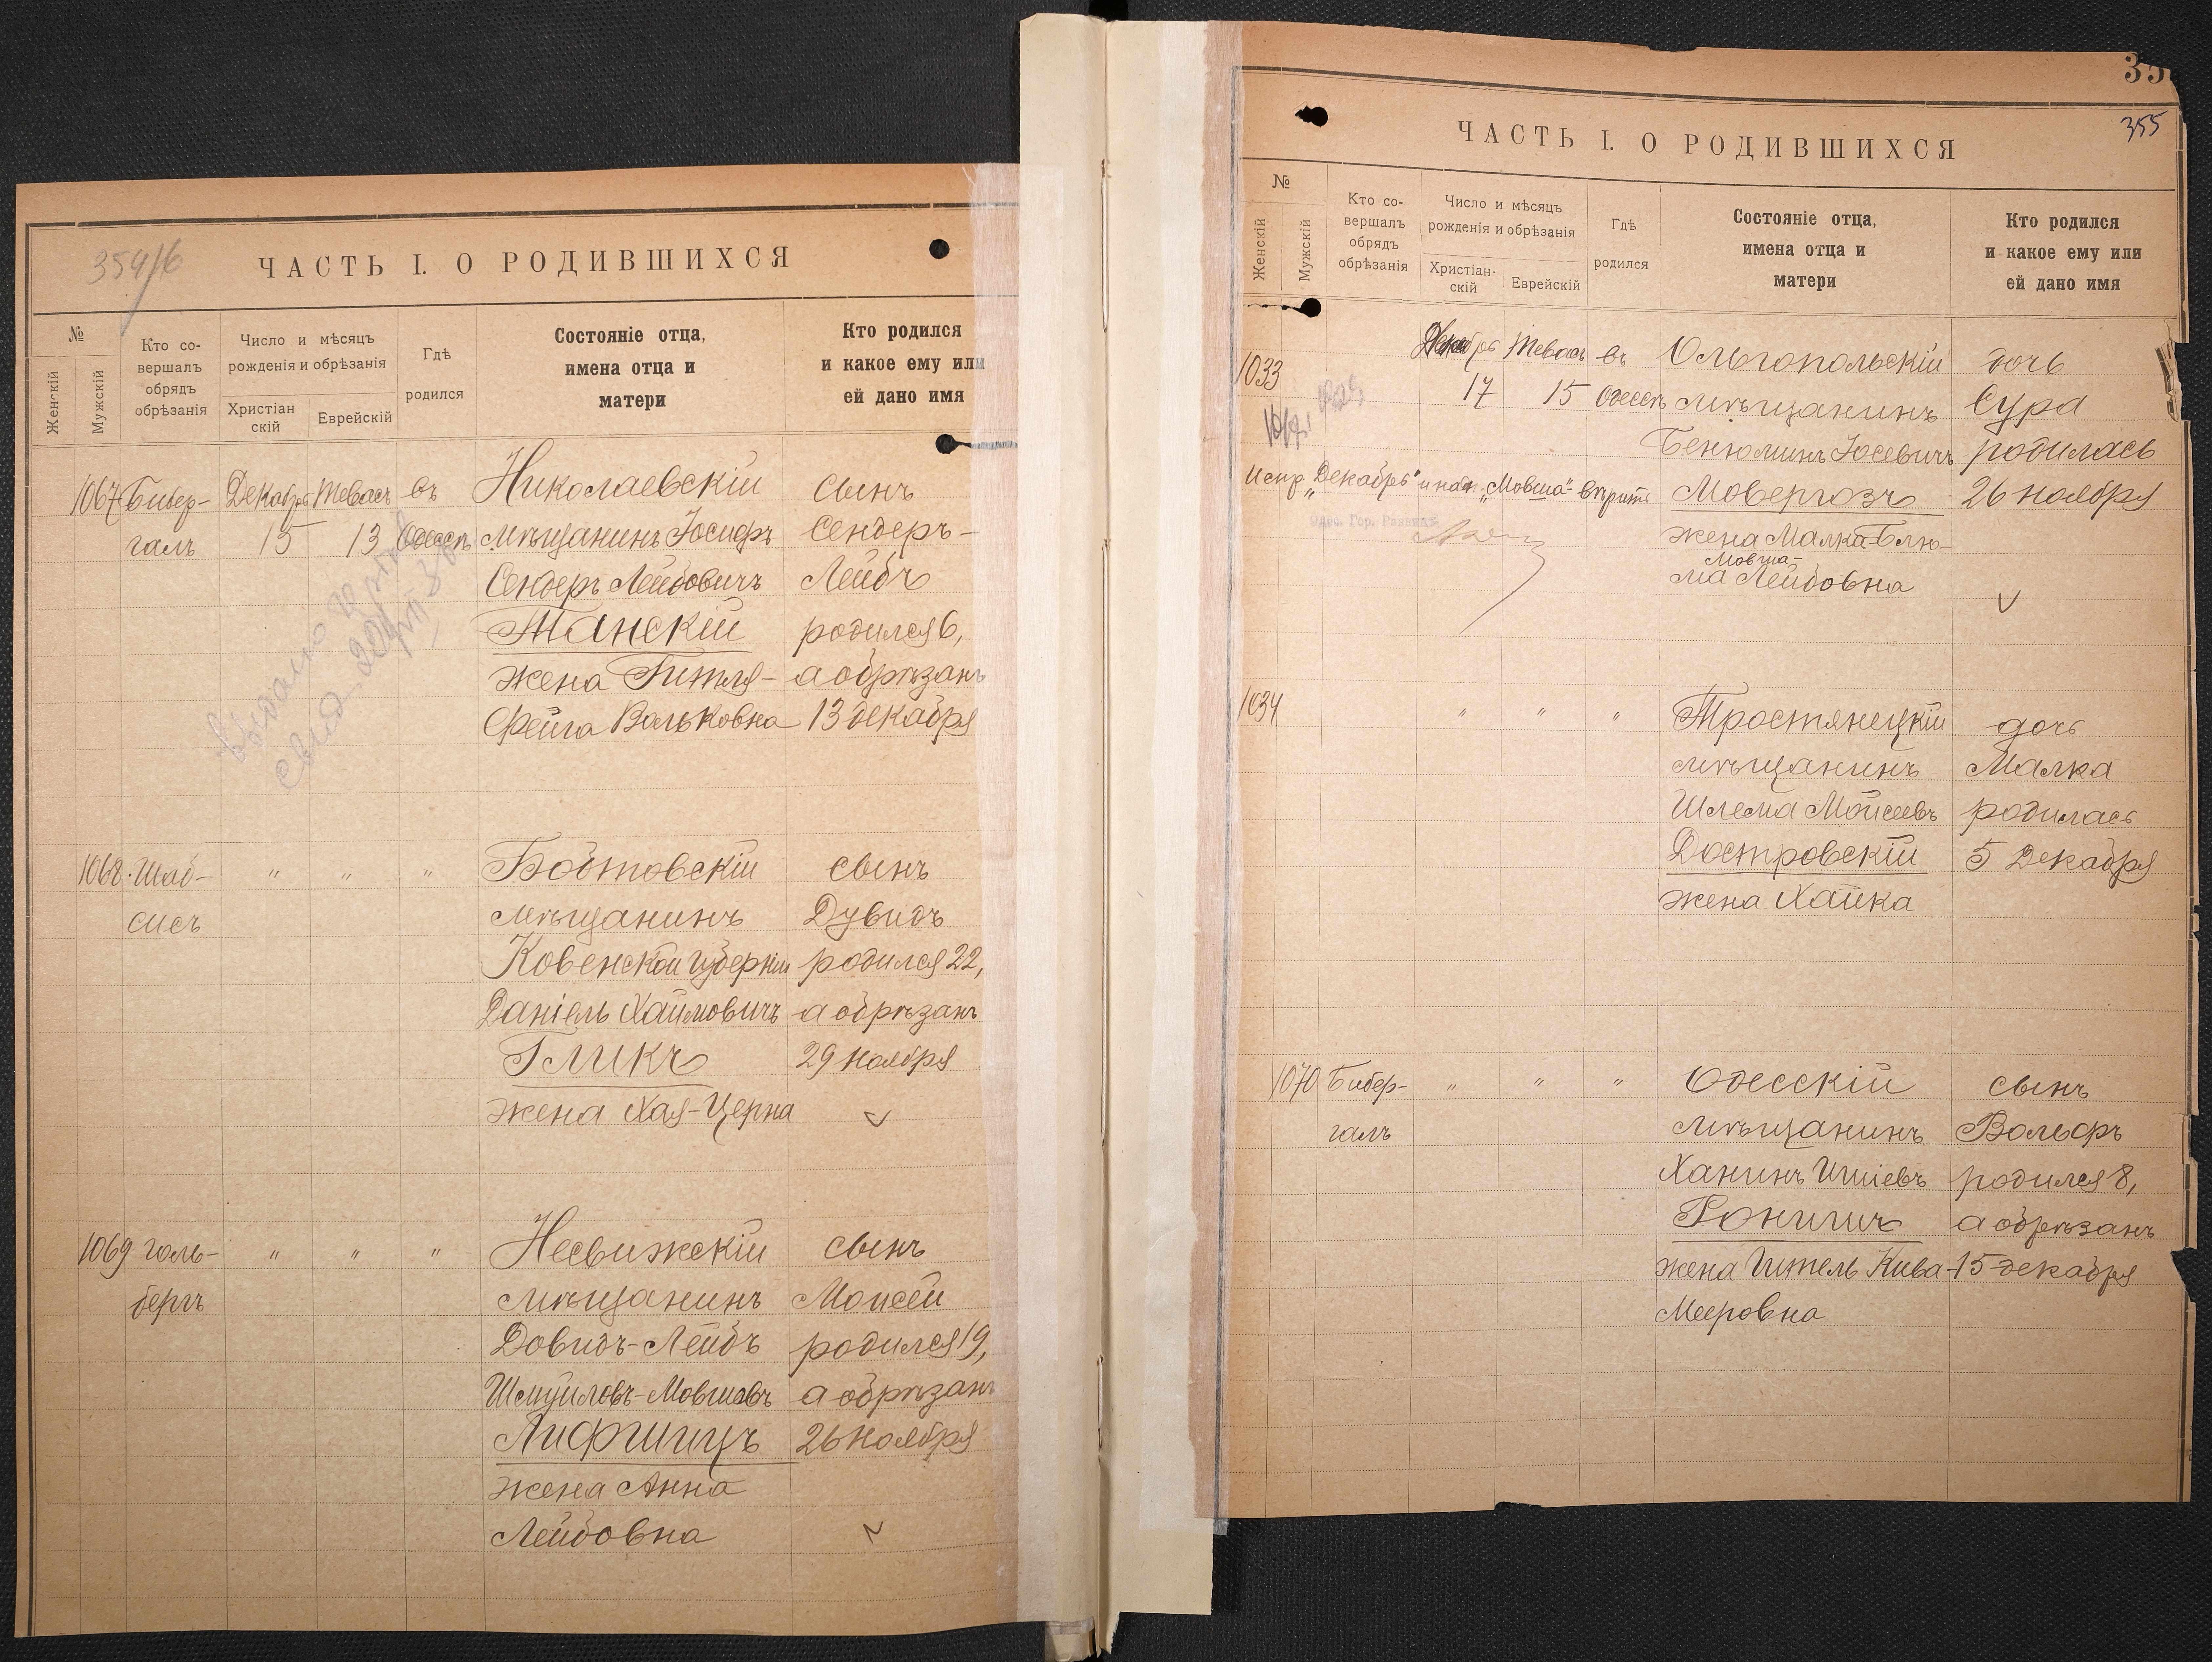 354/6
ЧАСТЬ I. О РОДИВШИХСЯ
№
Женскій
Мужскій
Кто со-
вершалъ
обрядъ
обрѣзанія
Число и мѣсяцъ
рожденія и обрѣзанія
Христіан
скій
Еврейскій
Гдѣ
родился
Состояніе отца,
имена отца и
матери
Кто родился
и какое ему или
ей дано имя
1067 Бибер- Декабрь Тевасъ въ Николаевскій сынъ
галъ 15 13 Одессѣ мѣщанинъ Іосифъ Сендеръ-
Сендеръ Лейбовичъ Лейбъ
Танскій родился 6,
жена Гитля- а обрѣзанъ
Фейга Вольковна 13 декабря
1068 Шаб- " " " Бобтовскій сынъ
сисъ мѣщанинъ Дувидъ
Ковенской губерніи родился 22,
Даніель Хаимовичъ а обрѣзанъ
Гликъ 29 ноября
жена Хая-Церна
1069 Голь- " " " Несвижскій сынъ
бергъ мѣщанинъ Моисей
Довидъ-Лейбъ родился 19,
Шмуиловъ-Мовшевъ а обрѣзанъ
Лифшицъ 26 ноября
жена Анна
Лейбовна
35
355
ЧАСТЬ I. О РОДИВШИХСЯ
№
Женскій
Мужскій
Кто со-
вершалъ
обрядъ
обрѣзанія
Число и мѣсяцъ
рожденія и обрѣзанія
Христіан-
скій
Еврейскій
Гдѣ
родился
Состояніе отца,
имена отца и
матери
Кто родился
и какое ему или
ей дано имя
1033 Декабрь Тевасъ въ Ольгопольскій дочь
17 15 Одессѣ мѣщанинъ Сура
Бенюминъ Іосевичъ родилась
Испр. „Декабрь" и надп. „Мовша-" вѣрить Мовергозъ 26 ноября
Одес. Гор. Раввинъ
жена Малка-Блю-
Мовша-
ма Лейбовна
1034 " " " Тростянецкій дочь
мѣщанинъ Малка
Шлема Мойсеевъ родилась
Достровскій 5 Декабря
жена Хайка
1070 Бибер- " " " Одесскій сынъ
галъ мѣщанинъ Вольфъ
Ханинъ Ишіевъ родился 8,
Ронишъ а обрѣзанъ
жена Гитель Кива- 15 декабря
Мееровна